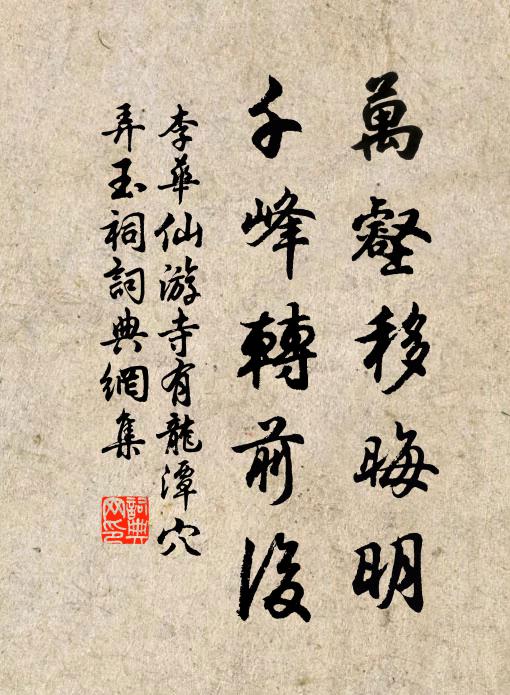 萬壑移晦明
千峰轉前後
李華仙游寺有龍潭穴
弄玉祠詞典網集
詞典網印